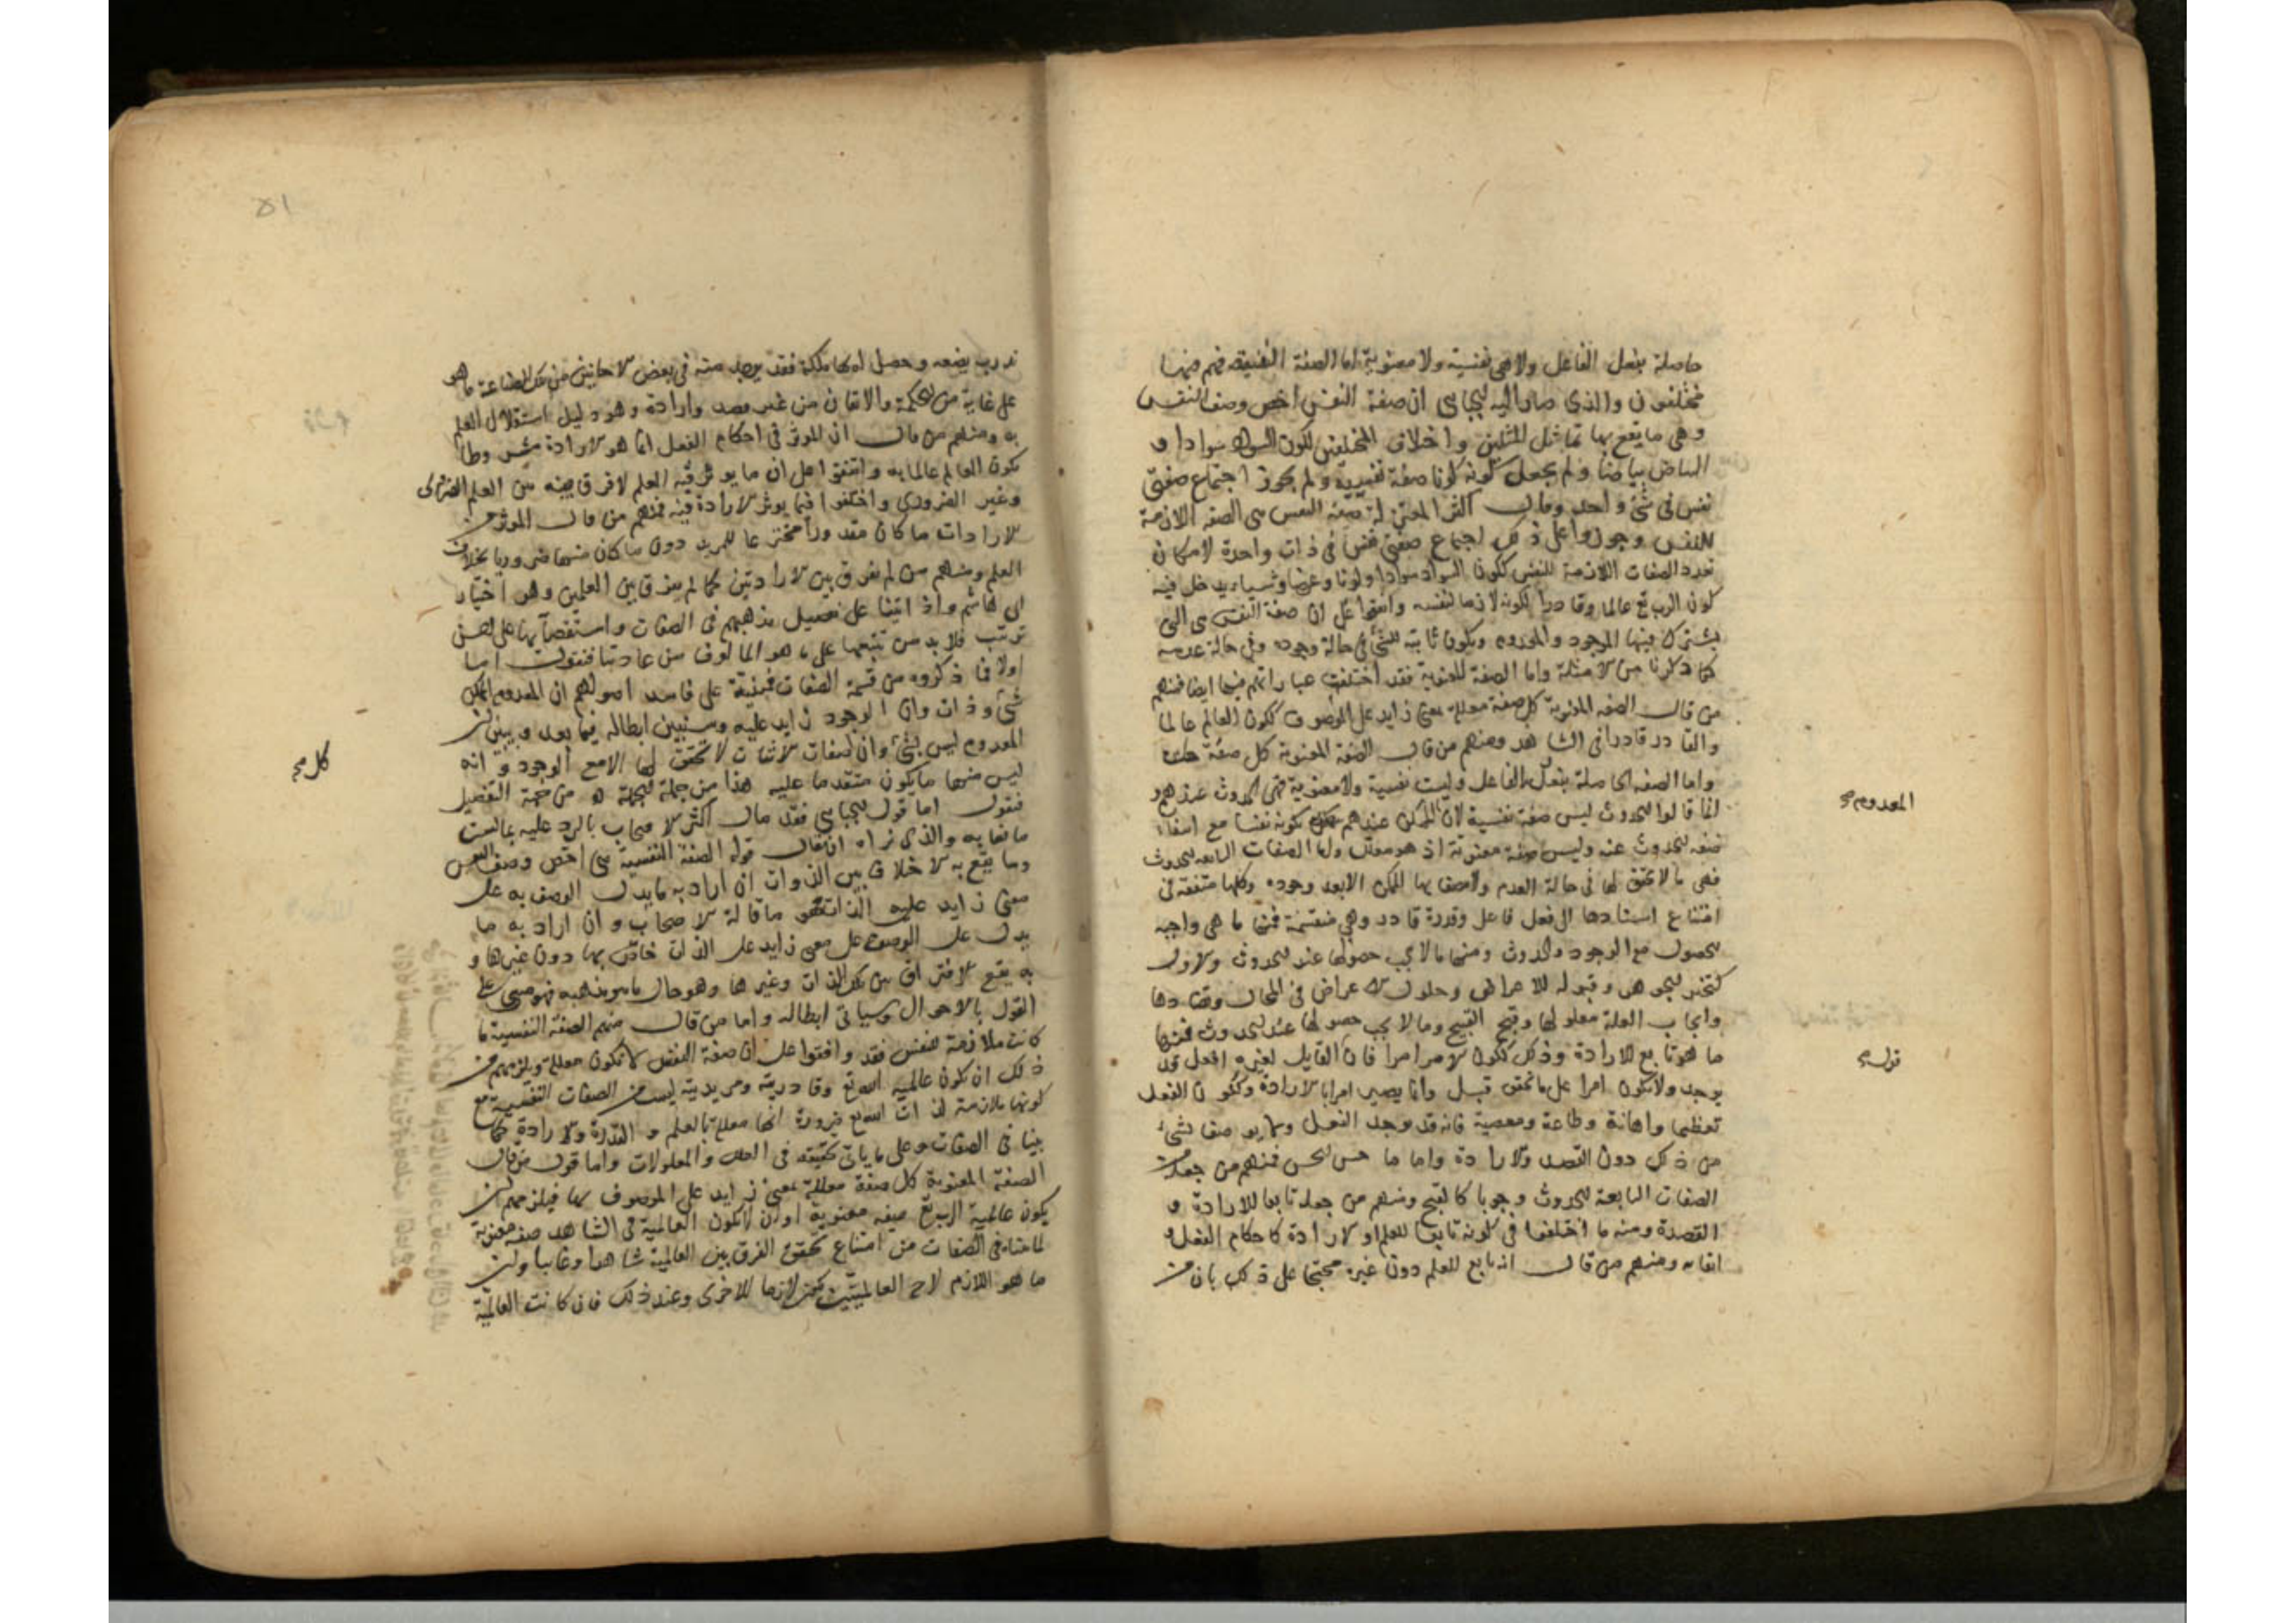 حاصلة بفعل الفاعل ولا هي نفسية ولا معنوية اما الصفة النفسية فهم فيها
مختلفون والذي صار اليه الجباى ان صفة النفس اخص وصف النفس
وهى ما يقع بها تماثل المثلين واختلاف المختلفين ككون السواد سوادا و
البياض بياضا ولم يجعل كونه لونا صفة نفسية ولم يجوز اجتماع صفتى
نفس فى شئ واحد وقال اكثر المعتزلة صفة النفس هى الصفة اللازمة
للنفس وجوزوا على ذلك اجتماع صفتى نفس فى ذات واحدة لامكان
تعدد الصفات اللازمة للنفس ككون السواد سوادا ولونا وعرضا وشيا ويدخل فيه
كون الرب تع عالما وقادرا لكونه لازما لنفسه واتفقوا على ان صفة النفس هى التى
يشترك فيها الموجود والمعدوم ويكون ثابتة للشئ فى حالة وجوده وفى حالة عدمه
كما ذكرنا من الامثلة واما الصفة المعنوية فقد اختلفت عباراتهم فيها ايضا فمنهم
من قال الصفة المعنوية كل صفة معللة بمعنى زايد على الموصوف ككون العالم عالما
والقادر قادرا فى الشاهد ومنهم من قال الصفة المعنوية كل صفة
واما الصفة الحاصلة بفعل الفاعل وليست نفسية ولا معنوية فهى الحدوث عندهم
انما قالوا الحدوث ليس صفة نفسية لان الممكن عندهم كونه نفسا مع انتفاء
صفة الحدوث عنه وليس صفة معنوية اذ هو معلل واما الصفات التابعة للحدوث
فهى ما لا تحقق لها فى حالة العدم ولا يتصف بها الممكن الا بعد وجوده وكلها متفقة فى
امتناع استنادها الى فعل فاعل وقدرة قادر وهى منقسمة فمنها ما هى واجبة
الحصول مع الوجود والحدوث ومنها ما لا يجب حصولها عند الحدوث والاول
كتحيز الجوهر وقبوله للاعراض وحلول الاعراض فى المحال وتضادها
وايجاب العلة معلولها وقبح القبيح وما لا يجب حصولها عند الحدوث فمنها
ما هو تابع للارادة وذلك ككون الامر امرا فان القايل لغيره افعل قد
يوجد ولا يكون امرا على ما تحقق قبل وانما يصير امرا بالارادة وككون الفعل
تعظيما واهانة وطاعة ومعصية فانه قد يوجد الفعل ولا يوصف بشئ
من ذلك دون القصد والارادة واما ما حسن الحسن فمنهم من جعله من
الصفات التابعة للحدوث وجوبا كالقبح ومنهم من جعله تابعا للارادة و
القصد ومنه ما اختلفوا فى كونه تابعا للعلم او الارادة كاحكام الفعل و
اتقانه ومنهم من قال انه تابع للعلم دون غيره محتجا على ذلك بان من
المعدوم صح
قوله
٥١
تدرب بصنعة وحصل له بها ملكة فقد يوجد منه فى بعض الاحايين من تلك الصناعة ما هو
على غاية من الحكمة والاتقان من غير قصد وارادة وهو دليل استقلال العلم
به ومنهم من قال ان الموثر فى احكام الفعل انما هو الارادة بشرط
كون العالم عالما به واتفقوا على ان ما يوثر فيه العلم لا فرق فيه بين العلم الضرورى
وغير الضروري واختلفوا فيما يوثر الارادة فيه فمنهم من قال الموثر من
الارادات ما كان مقدورا مخترعا للمريد دون ما كان منها ضروريا بخلاف
العلم ومنهم من لم يفرق بين الارادتين كما لم يفرق بين العلمين وهو اختيار
ابى هاشم واذ اتينا على تفصيل مذهبهم فى الصفات واستقصائها على احسن
ترتيب فلا بد من تتبعها على ما هو المالوف من عادتنا فنقول اما
اولا فما ذكروه من قسمة الصفات فمبنية على فاسد اصولهم ان المعدوم الممكن
شئ وذات وان الوجود زايد عليه وسنبين ابطاله فيما بعد ونبين ان
المعدوم ليس بشئ وان صفات الاثبات لا تحقق لها الا مع الوجود وانه
ليس منها ما يكون متقدما عليه هذا من جهة الجملة واما من جهة التفصيل
فنقول اما قول الجباى فقد مال اكثر الاصحاب بالرد عليه بما ليس
مانعا به والذى نراه ان يقال قوله الصفة النفسية هى اخص وصف النفس
وما يقع به الاختلاف بين الذوات ان اراد به ما يدل الوصف به على
معنى زايد عليه الذات فهو ما قاله الاصحاب وان اراد به ما
يدل على الوصف على معنى زايد على الذات خاص بها دون غيرها و
به يقع الافتراق بين تلك الذات وغيرها وهو حال ما هو مذهبه فهو مبنى على
القول بالاحوال وسياتى ابطاله واما من قال منهم الصفة النفسية ما
كانت ملازمة للنفس فقد وافقوا على ان صفة النفس لا تكون معللة ويلزمهم من
ذلك ان كون عالمية الله تع وقادريته ومريديته ليست من الصفات النفسية مع
كونها ملازمة لذات الله تع ضرورة انها معللة بالعلم والقدرة والارادة كما
بينا فى الصفات وعلى ما ياتى تحقيقه فى العلل والمعلولات واما قول من قال
الصفة المعنوية كل صفة معللة بمعنى زايد على الموصوف بها فيلزمهم ان
يكون عالمية الرب تع صفة معنوية او ان لا يكون العالمية فى الشاهد صفة معنوية
لما بيناه فى الصفات من امتناع تحقق الفرق بين العالمية شاهدا وغايبا وان
ما هو اللازم لاحد العالميتين يكون لازما للاخرى وعند ذلك فان كانت العالمية